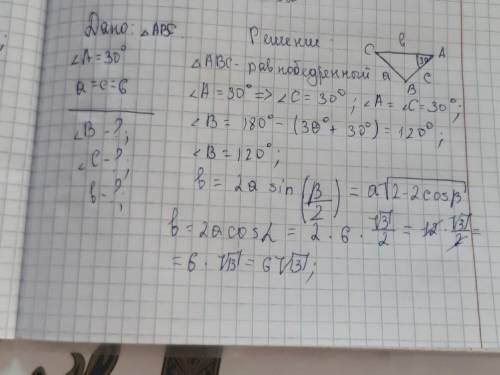 Дано: △ABC
∠A = 30°
a = c = 6
∠B - ?;
∠C - ?;
b - ?;
Решение
C b A
30°
a c
B
△ABC - равнобедренный
∠A = 30° => ∠C = 30°; ∠A = ∠C = 30°;
∠B = 180° - (30° + 30°) = 120°;
∠B = 120°;
b = 2a sin(β/2) = a√2-2cosβ
b = 2a cos L = 2 · 6 · √3/2 = 12 · √3/2 =
= 6 · √3 = 6√3;